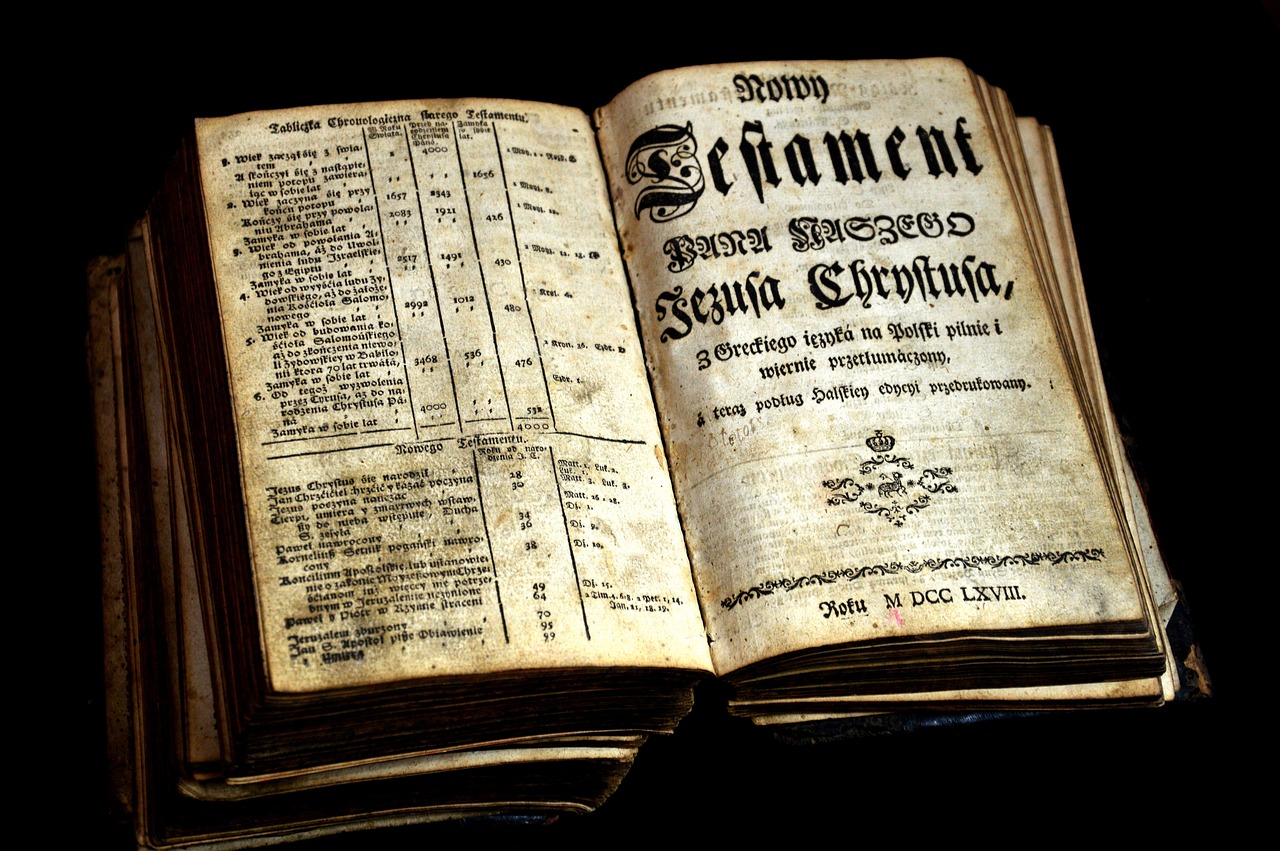 Tabliczka Chronologiczna starego Testamentu.
W Roku Swiata.
Przed narodzeniem Chrystusa Pana.
Zamyka w sobie lat.
1. Wiek zaczął się z światem 1 4000 1 Moj. 1
A skończył się z nastąpieniem potopu zawierając w sobie lat 1656
2. Wiek zaczyna się przy końcu potopu 1657 2343
Kończy się przy powołaniu Abrahama 2083 1921
Zamyka w sobie lat 426
3. Wiek od powołania Abrahama, aż do Uwolnienia ludu Izraelskiego z Egiptu 2517 1491
Zamyka w sobie lat 430
4. Wiek od wyyścia ludu Żydowskiego, aż do założenia Kościoła Salomonowego 2992 1012
Zamyka w sobie lat 480
5. Wiek od budowania kościoła Salomońskiego aż do zkończenia niewoli Żydowskiey w Babilonii ktora 70 lat trwała, 3468 536
Zamyka w sobie lat 476
6. Od tegoż wyzwolenia przez Cyrusa, aż do narodzenia Chrystusa Pana 4000
Zamyka w sobie lat 532
4000
Nowego Testamentu.
Roku od narodzenia J. C.
Jezus Chrystus się narodził
Jan Chrzciciel chrzcić y kazać poczyna 28
Jezus poczyna nauczać 30
Cierpi, umiera y zmartwych wstawszy do nieba wstępuie, Ducha S. zsyła 34
Paweł nawrocony 36
Korneliusz Setnik pogański nawrocony 38
Koncilium Apostolskie 49
64
Paweł y Piotr w Rzymie straceni
Jeruzalem zburzony 70
Jan S. Apostoł pisze Obiawienie 95
y umiera 99
Nowy
Testament
PANA NASZEGO
Jezusa Chrystusa,
Z Greckiego ięzyká na Polski pilnie i
wiernie przetłumáczony,
á teraz podług Halskiey edycyi przedrukowany.
Roku M DCC LXVIII.